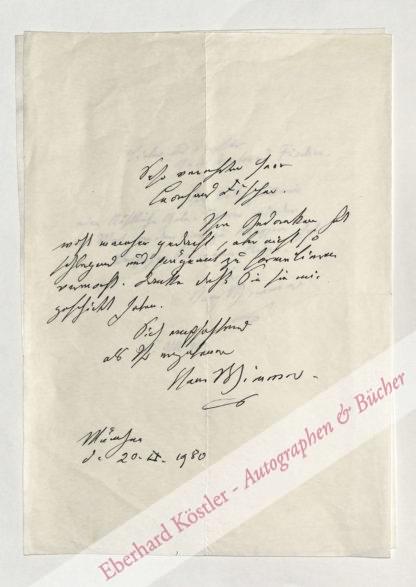 Sehr verehrter Herr
Leonhard Fischer.
Ihre Gedanken
wohl mancher gedacht, aber nicht so
schlagend und prägnant zu formulieren
vermocht. Danke daß Sie sie mir
geschickt haben.
Sich empfehlend
als Ihr ergebener
Hans
München
d. 20. II. 1980
Eberhard Köstler - Autographen & Bücher